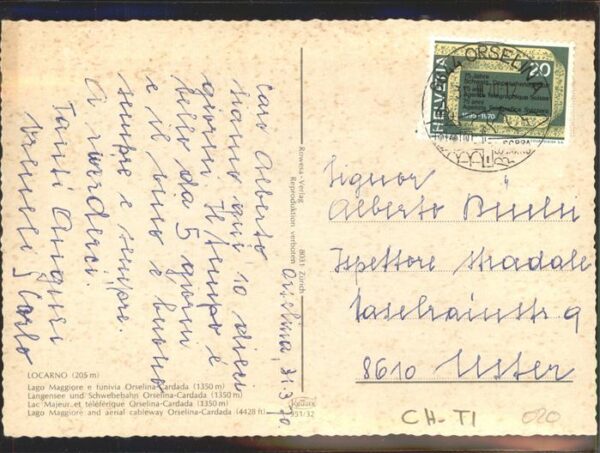 Orselina, 31.3.70
Caro Alberto,
siamo qui 10 dieci
giorni. Il tempo è
bello da 5 giorni
e il vino è buono
sempre e sempre.
A rivederci.
Tanti Auguri
Carlo
LOCARNO (205 m)
Lago Maggiore e funivia Orselina-Cardada (1350 m)
Langensee und Schwebebahn Orselina-Cardada (1350 m)
Lac Majeur et téléférique Orselina-Cardada (1350 m)
Lago Maggiore and aerial cableway Orselina-Cardada (4428 ft)
Rowesa-Verlag 8031 Zürich
Reproduktion verboten
351/32
HELVETIA
20
75 Jahre
Schweiz. Depeschenagentur
75 ans
Agence Télégraphique Suisse
75 anni
Agenzia Telegrafica Svizzera
1895-1970
ORSELINA
Signor
Alberto
Ispettore Stradale
9
8610 Uster
CH-TI
020